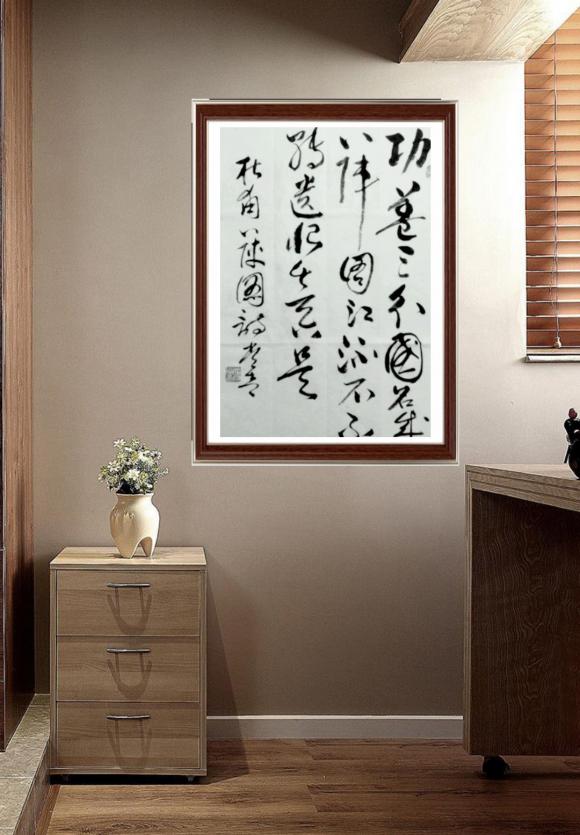 功蓋三分國名成
八陣图江流不
转遗恨失吞吴
杜甫八陣图詩